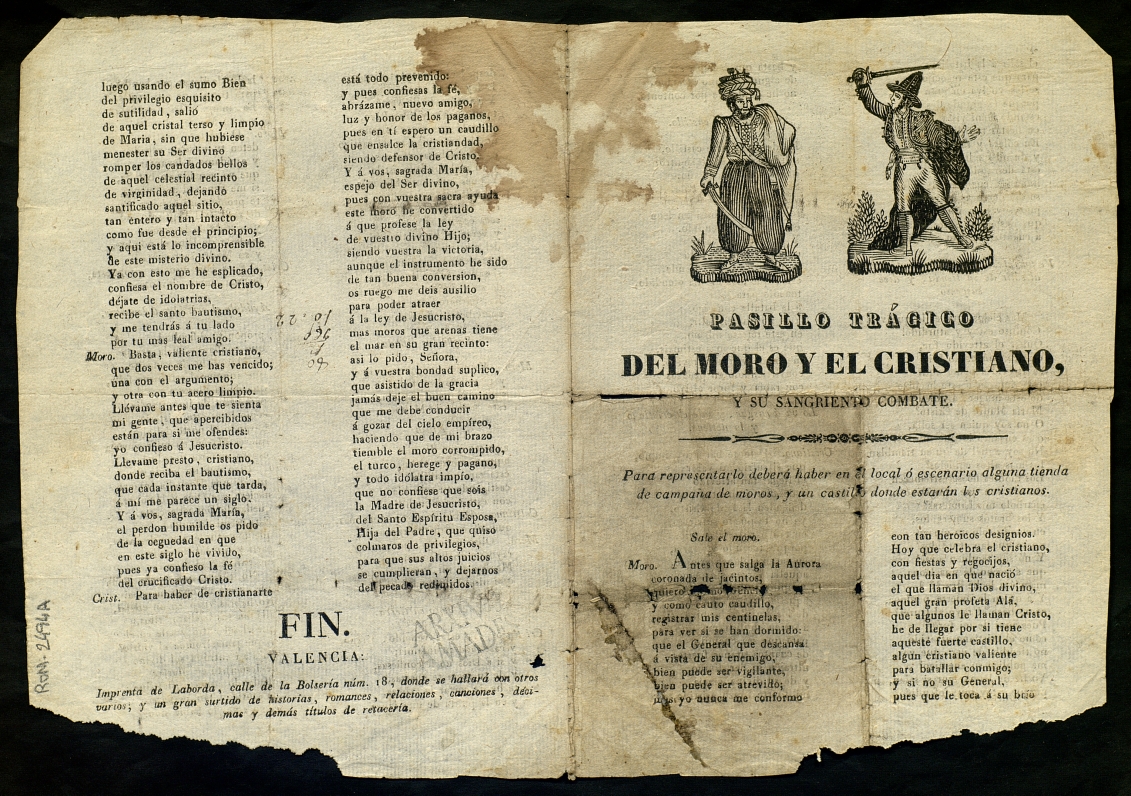 luego usando el sumo Bien
del privilegio esquisito
de sutilidad, salió
de aquel cristal terso y limpio
de Maria, sin que hubiese
menester su Ser divino
romper los candados bellos
de aquel celestial recinto
de virginidad, dejando
santificado aquel sitio,
tan entero y tan intacto
como fue desde el principio;
y aqui está lo incomprensible
de este misterio divino.
Ya con esto me he esplicado,
confiesa el nombre de Cristo,
déjate de idolatrias,
recibe el santo bautismo,
y me tendrás á tu lado
por tu mas leal amigo.
Moro. Basta, valiente cristiano,
que dos veces me has vencido;
una con el argumento;
y otra con tu acero limpio.
Llévame antes que te sienta
mi gente, que apercibidos
están para si me ofendes:
yo confieso á Jesucristo.
Llevame presto, cristiano,
donde reciba el bautismo,
que cada instante que tarda,
á mí me parece un siglo.
Y á vos, sagrada María,
el perdon humilde os pido
de la ceguedad en que
en este siglo he vivido,
pues ya confieso la fé
del crucificado Cristo.
Crist. Para haber de cristianarte
está todo prevenido:
y pues confiesas la fé,
abrázame, nuevo amigo,
luz y honor de los paganos,
pues en tí espero un caudillo
que ensalce la cristiandad,
siendo defensor de Cristo.
Y á vos, sagrada María,
espejo del Ser divino,
pues con vuestra sacra ayuda
este moro he convertido
á que profese la ley
de vuestro divino Hijo;
siendo vuestra la victoria,
aunque el instrumento he sido
de tan buena conversion,
os ruego me deis ausilio
para poder atraer
á la ley de Jesucristo,
mas moros que arenas tiene
el mar en su gran recinto:
asi lo pido, Señora,
y á vuestra bondad suplico,
que asistido de la gracia
jamás deje el buen camino
que me debe conducir
á gozar del cielo empíreo,
haciendo que de mi brazo
tiemble el moro corrompido,
el turco, herege y pagano,
y todo idólatra impío,
que no confiese que sois
la Madre de Jesucristo,
del Santo Espíritu Esposa,
Hija del Padre, que quiso
colmaros de privilegios,
para que sus altos juicios
se cumplieran, y dejarnos
del pecado redimidos.
FIN.
VALENCIA:
Imprenta de Laborda, calle de la Bolsería núm. 18, donde se hallará con otros
varios; y un gran surtido de historias, romances, relaciones, canciones, déci-
mas y demás títulos de retacería.
ROM. 2494A
PASILLO TRÁGICO
DEL MORO Y EL CRISTIANO,
Y SU SANGRIENTO COMBATE.
Para representarlo deberá haber en el local ó escenario alguna tienda
de campaña de moros, y un castillo donde estarán los cristianos.
Sale el moro.
Moro. Antes que salga la Aurora
coronada de jacintos,
quiero
y como cauto caudillo,
registrar mis centinelas,
para ver si se han dormido:
que el General que descansa
á vista de su enemigo,
bien puede ser vigilante,
bien puede ser atrevido;
mas yo nunca me conformo
con tan heroicos designios.
Hoy que celebra el cristiano,
con fiestas y regocijos,
aquel dia en que nació
el que llaman Dios divino,
aquel gran profeta Alá,
que algunos le llaman Cristo,
he de llegar por si tiene
aqueste fuerte castillo,
algun cristiano valiente
para batallar conmigo;
y si no su General,
pues que le toca á su brio